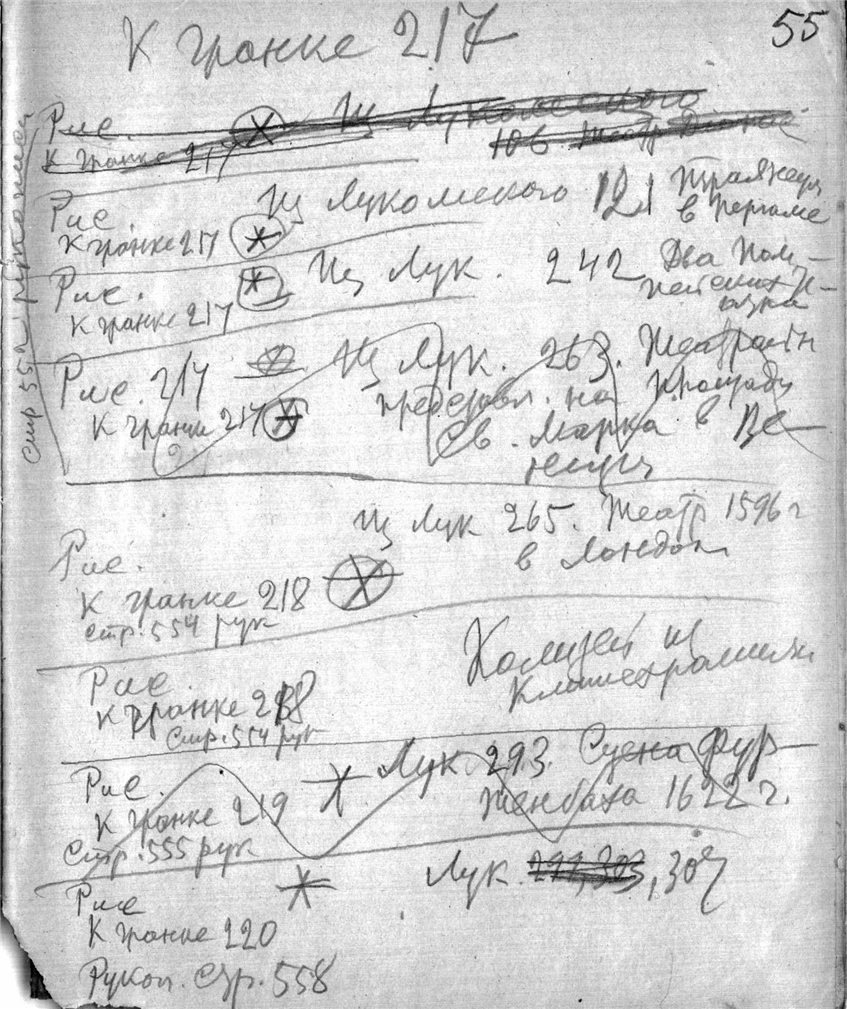 55
К гранке 217
Рис.
К гранке 217
Из Лукомского
106 Театр
Рис.
К гранке 217
Из Лукомского 121
в Пергаме
Рис.
К гранке 217
Из Лук. 242 Два Пом-
пейских
стр 552 рукописи
Рис. 217
К гранке 217
Из Лук. 263.
представл. на площади
Св. Марка в Ве-
неции
Рис.
К гранке 218
стр. 554 рук
Из Лук 265. Театр 1596 г
в Лондон
Рис.
К гранке 218
Стр. 554 рук
Колизей из
Рис.
К гранке 219
Стр. 555 рук
Лук 293. Сцена Фур-
тенбаха 1622 г.
Рис
К гранке 220
Рукоп. Стр. 558
Лук.